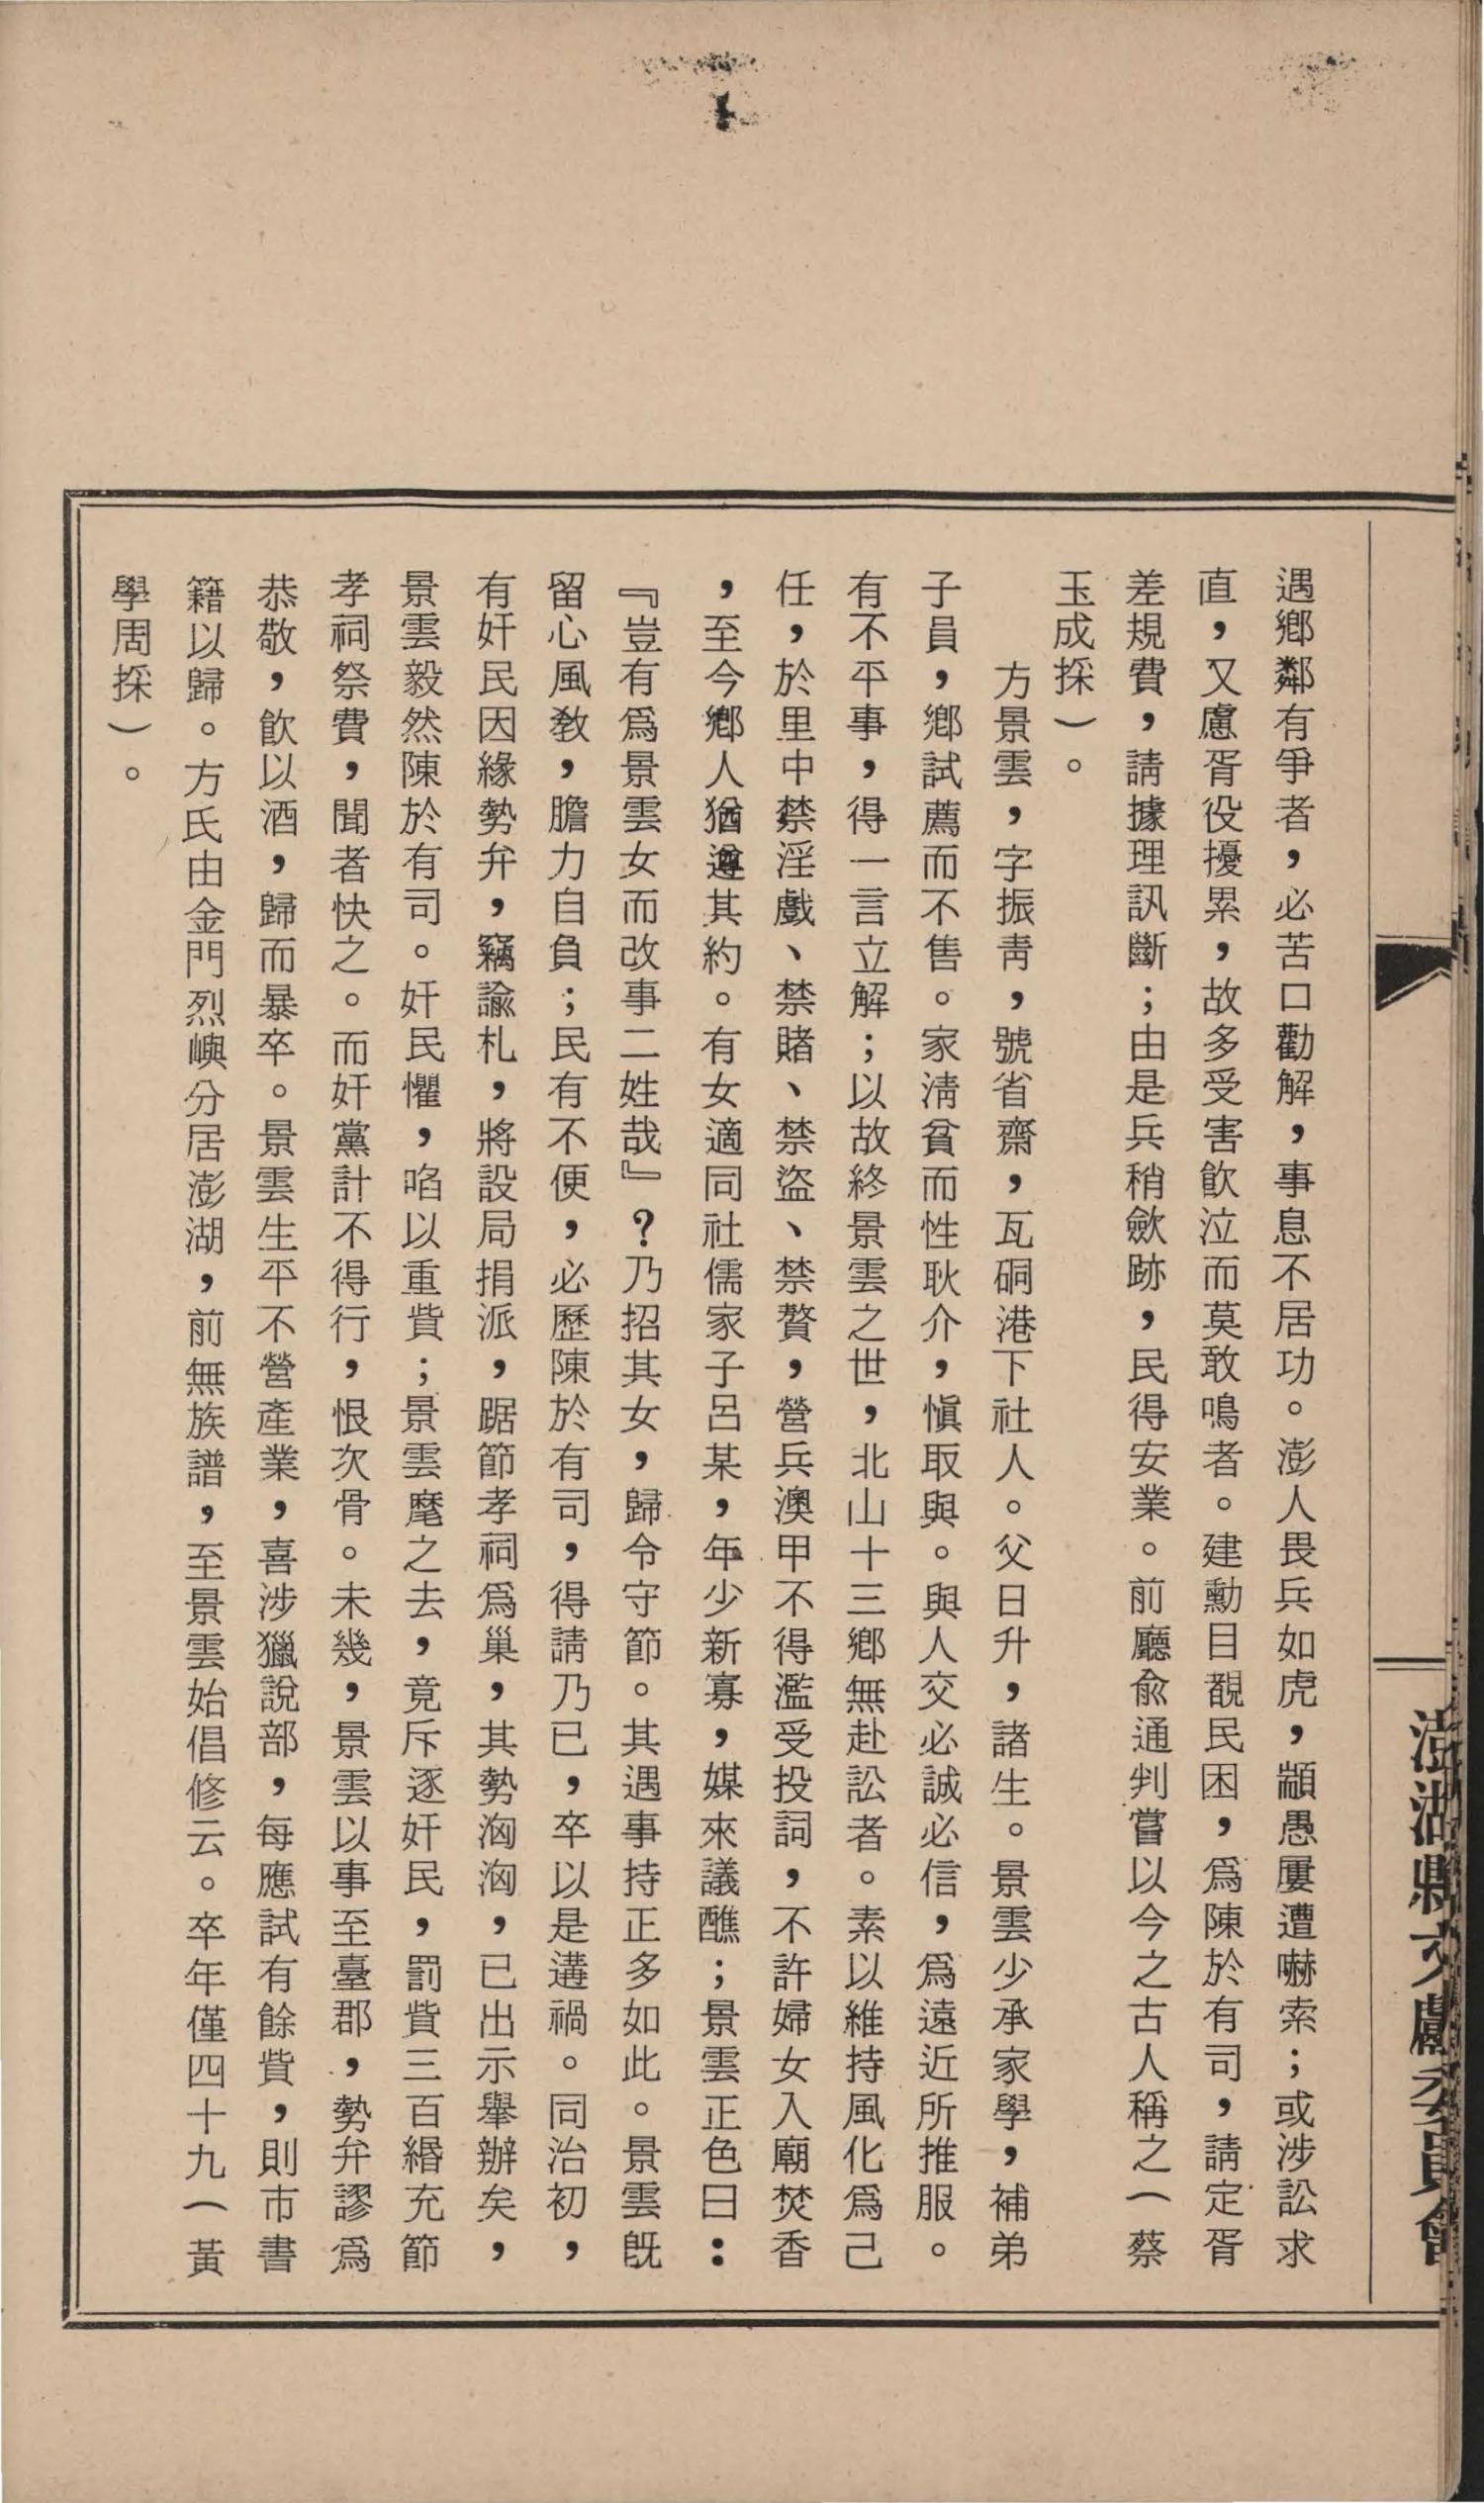 遇鄉鄰有爭者，必苦口勸解，事息不居功。澎人畏兵如虎，顓愚屢遭嚇索；或涉訟求
直，又慮胥役擾累，故多受害飲泣而莫敢鳴者。建勳目覩民困，爲陳於有司，請定胥
差規費，請據理訊斷；由是兵稍歛跡，民得安業。前廳俞通判嘗以今之古人稱之（蔡
玉成採）。
方景雲，字振靑，號省齋，瓦硐港下社人。父日升，諸生。景雲少承家學，補弟
子員，鄉試薦而不售。家淸貧而性耿介，愼取與。與人交必誠必信，爲遠近所推服。
有不平事，得一言立解；以故終景雲之世，北山十三鄉無赴訟者。素以維持風化爲己
任，於里中禁淫戲、禁賭、禁盜、禁贅，營兵澳甲不得濫受投詞，不許婦女入廟焚香
，至今鄕人猶遵其約。有女適同社儒家子呂某，年少新寡，媒來議醮；景雲正色曰：
『豈有爲景雲女而改事二姓哉』？乃招其女，歸令守節。其遇事持正多如此。景雲旣
留心風敎，膽力自負；民有不便，必歷陳於有司，得請乃已，卒以是遘禍。同治初，
有奸民因緣勢弁，竊諭札，將設局捐派，踞節孝祠爲巢，其勢洶洶，已出示舉辦矣，
景雲毅然陳於有司。奸民懼，啗以重貲；景雲麾之去，竟斥逐奸民，罰貲三百緡充節
孝祠祭費，聞者快之。而奸黨計不得行，恨次骨。未幾，景雲以事至臺郡，勢弁謬爲
恭敬，飲以酒，歸而暴卒。景雲生平不營產業，喜涉獵說部，每應試有餘貲，則市書
籍以歸。方氏由金門烈嶼分居澎湖，前無族譜，至景雲始倡修云。卒年僅四十九（黃
學周採）。
澎湖縣文獻委員會